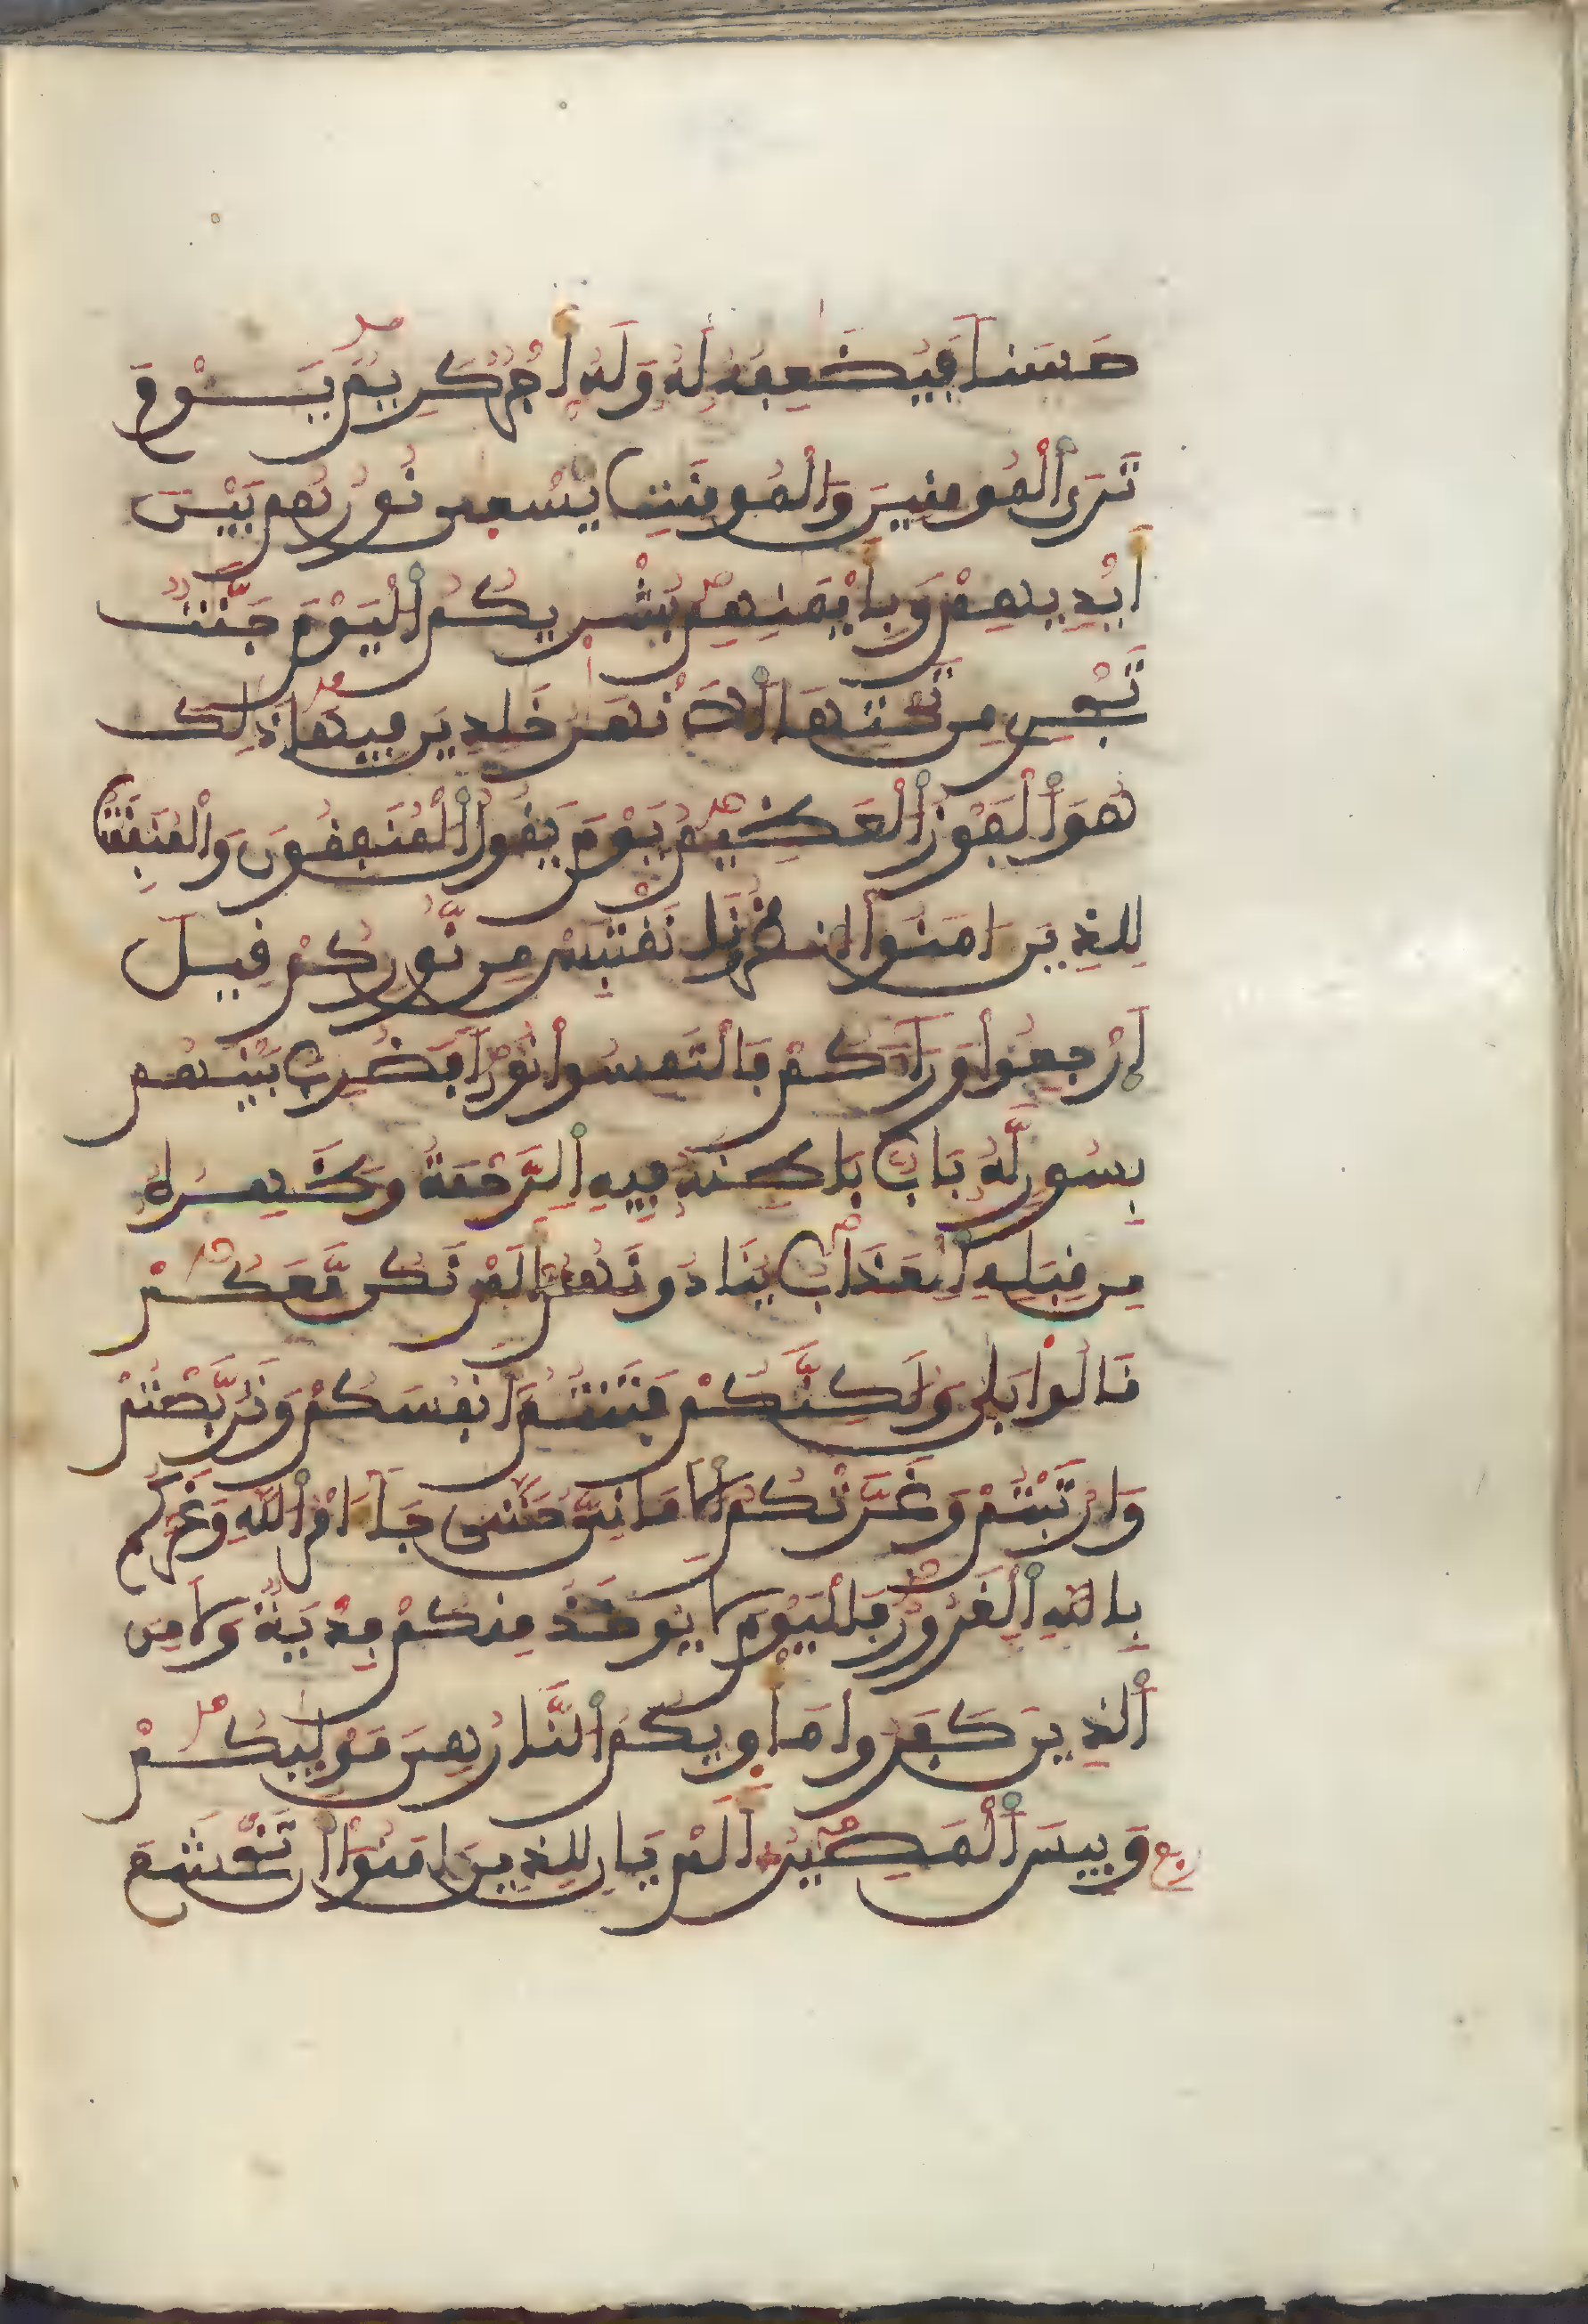 حَسَنا فَيُضَعِفُهُ لَهُ وَلَهُ أَجْرٌ كَرِيمٌ يَوْمَ
تَرَى اَلْمُومِنِينَ وَالْمُومِنَتِ يَسْعِى نُورُهُم بَيْنَ
أَيْدِيهِمْ وَبِأَيْمَنِهِم بُشْرِيكُمُ اُلْيَوْمَ جَنَّتٌ
تَجْرِي مِن تَحْتِهَا اَلَانْهَرُ خَلِدِينَ فِيهَا ذَلِكَ
هُوَ اَلْفَوْزُ اُلْعَظِيمُ يَوْمَ يَقُولُ اُلْمُنَفِقُونَ وَالْمُنَفِقَتُ
لِلذِينَ ءَامَنُوا اُنظُرُونَا نَقْتَبِسْ مِن نُّورِكُمْ قِيلَ
اَرْجِعُوا وَرَآءَكُمْ فَالْتَمِسُوا نُوراً فَضُرِبَ بَيْنَهُم
بِسُورٍ لَّهُ بَابٌ بَاطِنُهُ فِيهِ اِلرَّحْمَةُ وَظَهِرُهُ
مِن قِبَلِهِ اِلْعَذَابُ يُنَادُونَهُمُ أَلَمْ نَكُن مَّعَكُمْ
قَالُوا بَلَى وَلَكِنَّكُمْ فَتَنتُمُ أَنفُسَكُمْ وَتَرَبَّصْتُمْ
وَارْتَبْتُمْ وَغَرَّتْكُمُ اُلَامَانِيُّ حَتَّى جَآ أَمْرُ اُللَّهِ وَغَرَّكُم
بِاللَّهِ اِلْغَرُورُ فَالْيَوْمَ لَا يُوخَذُ مِنكُمْ فِدْيَةٌ وَلَا مِنَ
اَلذِينَ كَفَرُوا مَأْوِيكُمُ اُلنَّارُ هِيَ مَوْلِيكُمْ
وَبِيسَ اَلْمَصِيرُ أَلَمْ يَانِ لِلذِينَ ءَامَنُوا أَن تَخْشَعَ
ربع